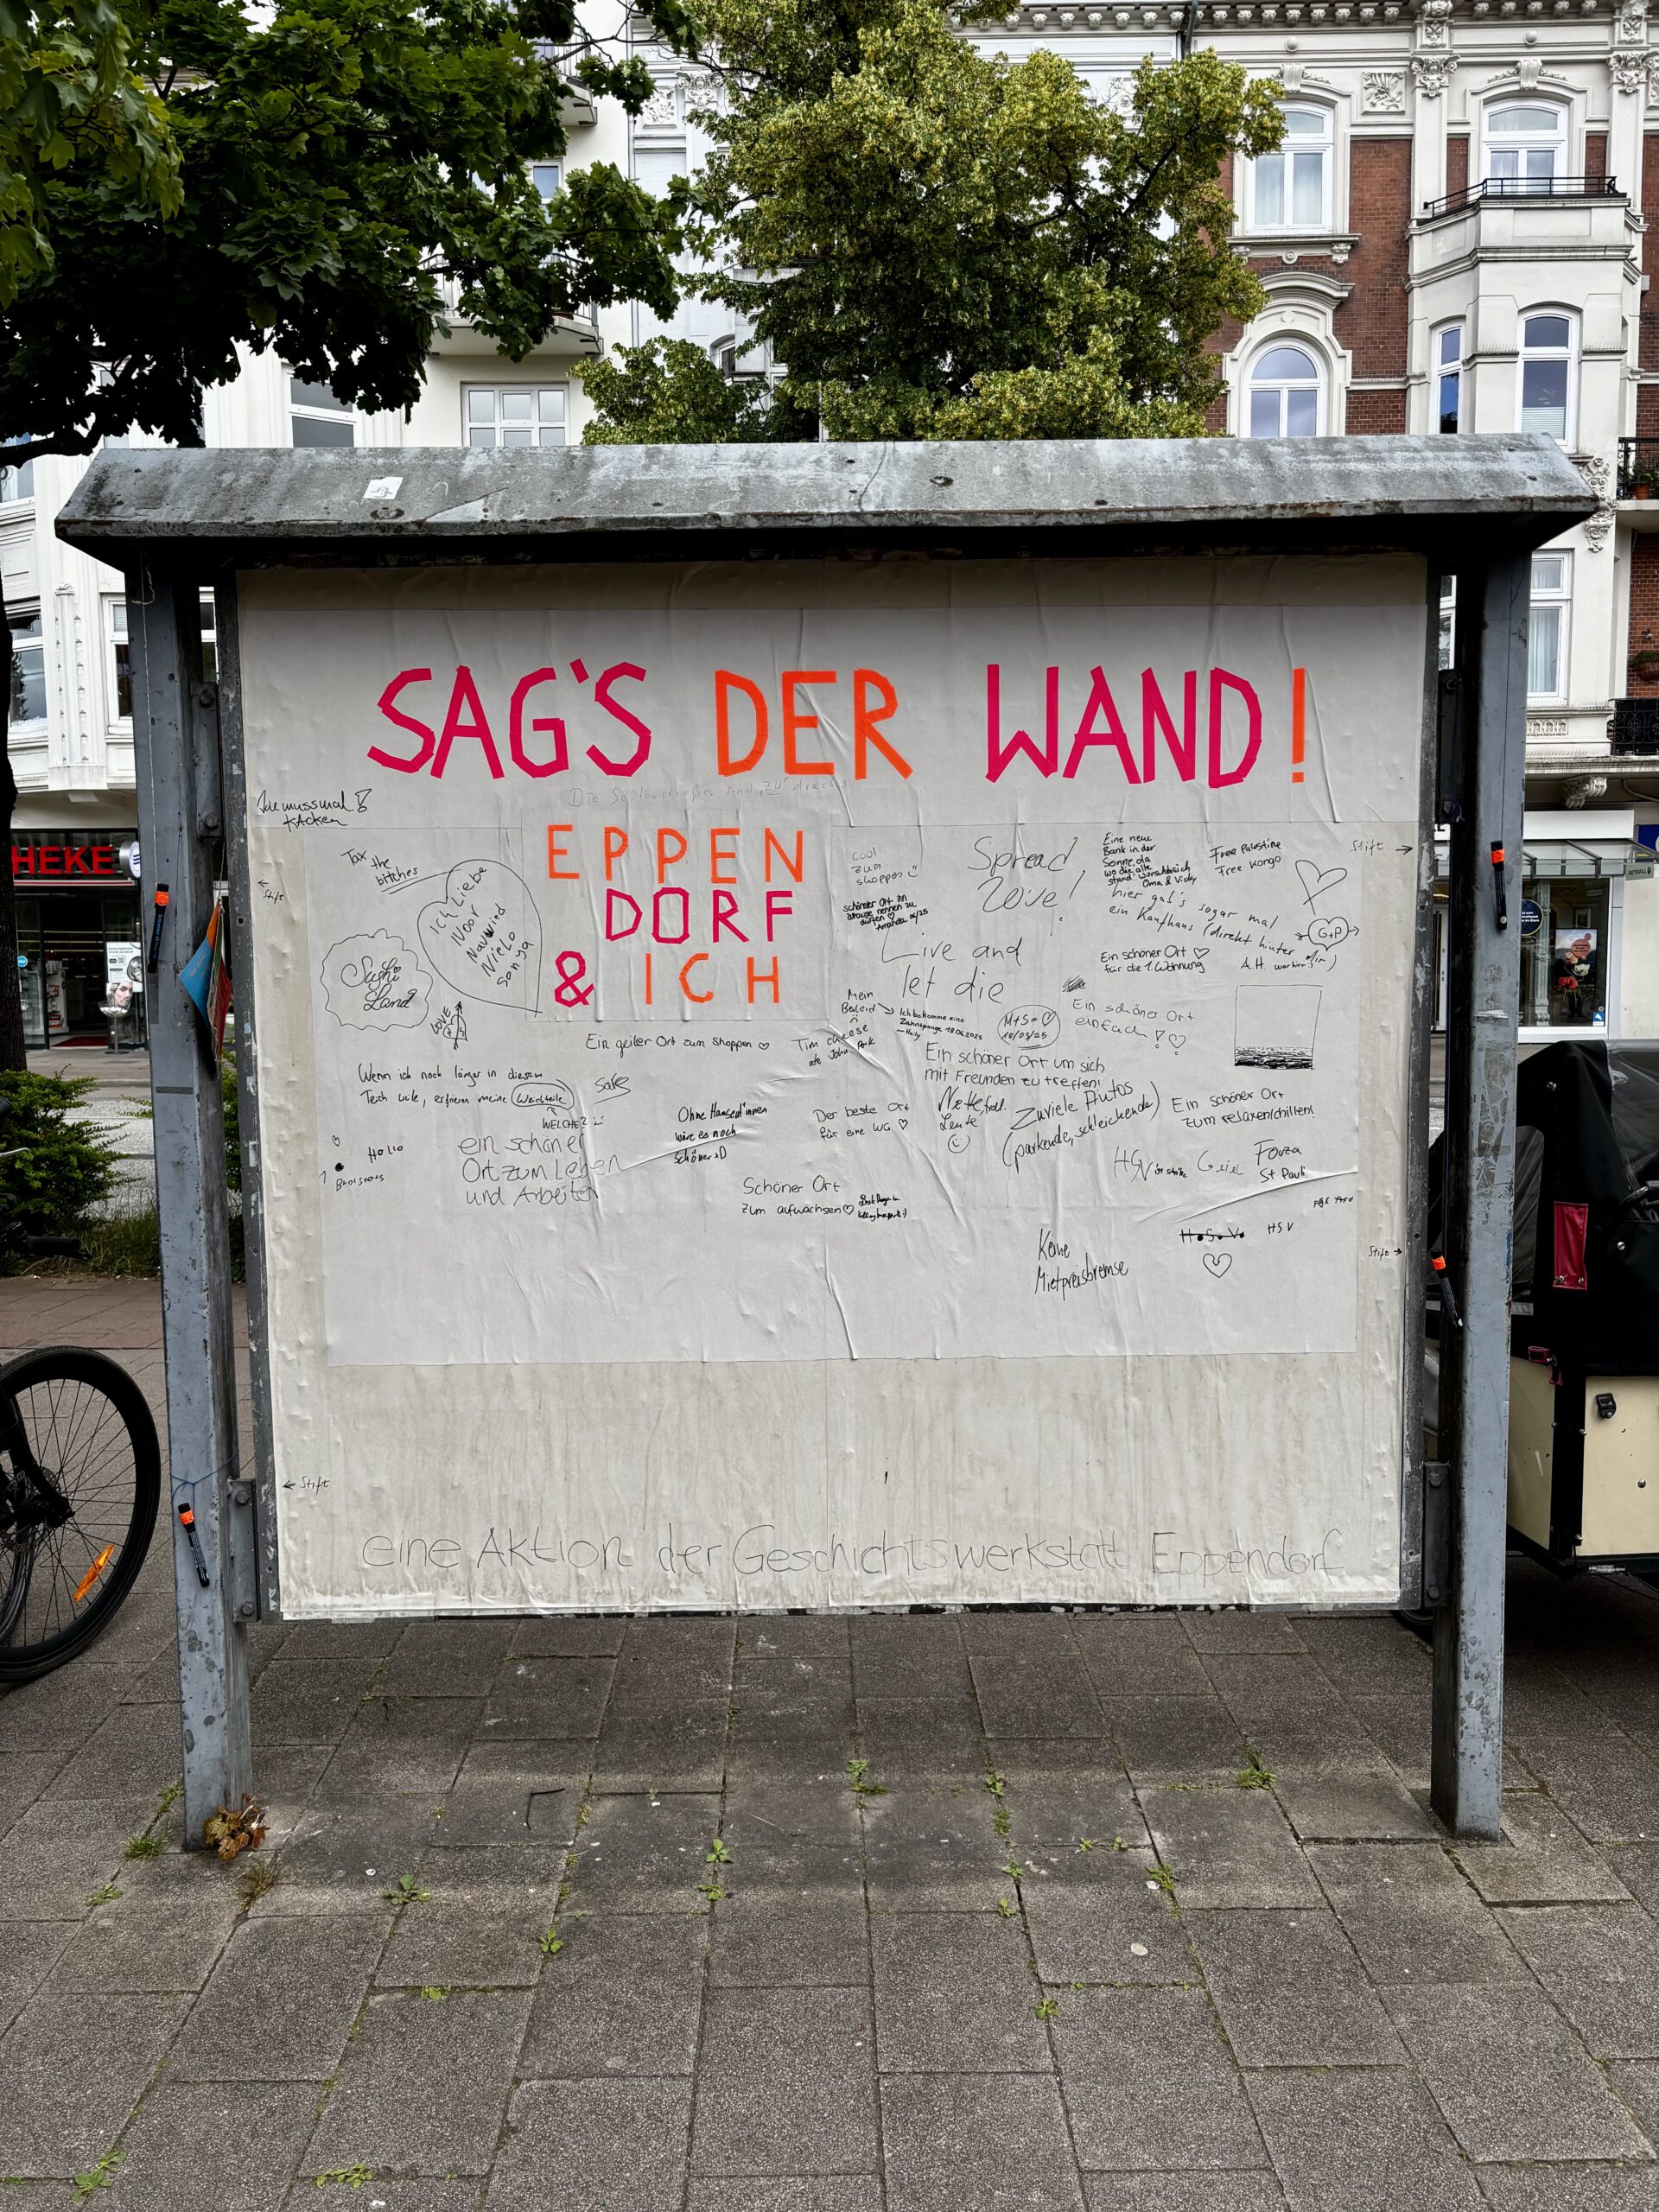 SAG'S DER WAND!
Die Seitenstraßen sind "zu" dreckig
Ich muss mal
KAcken
EPPEN
DORF
& ICH
Tax the
bitches
← Stift
Ich Liebe
Noor
Nielo
Sonya
Sushi
Land
LOVE
cool
zum
shoppen
schönster Ort ihn
zuhause nennen zu
dürfen ♡
Amanda 06/25
Spread
love!
Eine neue
Bank in der
Sonne, da
wo die alte
stand, wünscht sich
Oma & Vicky
Free Palestine
Free Kongo
Stift →
hier gab's sogar mal
ein Kaufhaus (direkt hinter
dir)
A.H. war hier
G+P
Live and
let die
Ein schöner Ort ♡
für die 1. Wohnung
Mein
Beileid
Ich bekomme eine
Zahnspange 18.06.2025
M+S=♡
18/05/25
Ein schöner Ort
einfach! ♡
Ein geiler Ort zum shoppen ♡
Tim cheese
ate John Pork
Ein schöner Ort um sich
mit Freunden zu treffen!
Wenn ich noch länger in diesem
Teich wate, erfrieren meine Weichteile
WELCHE?
Safe
Ohne Hansed*innen
wäre es noch
schöner :D
Der beste Ort
für eine WG ♡
Nette
Leute
Zuviele Autos
(parkende, schleichende)
Ein schöner Ort
zum relaxen/chillen!
Hallo
ein schöner
Ort zum Leben
und Arbeiten
HSV
Forza
St Pauli
Schöner Ort
zum aufwachsen ♡
Keine
Mietpreisbremse
H.S.V.
HSV
Stift →
← Stift
eine Aktion der Geschichtswerkstatt Eppendorf
HEKE